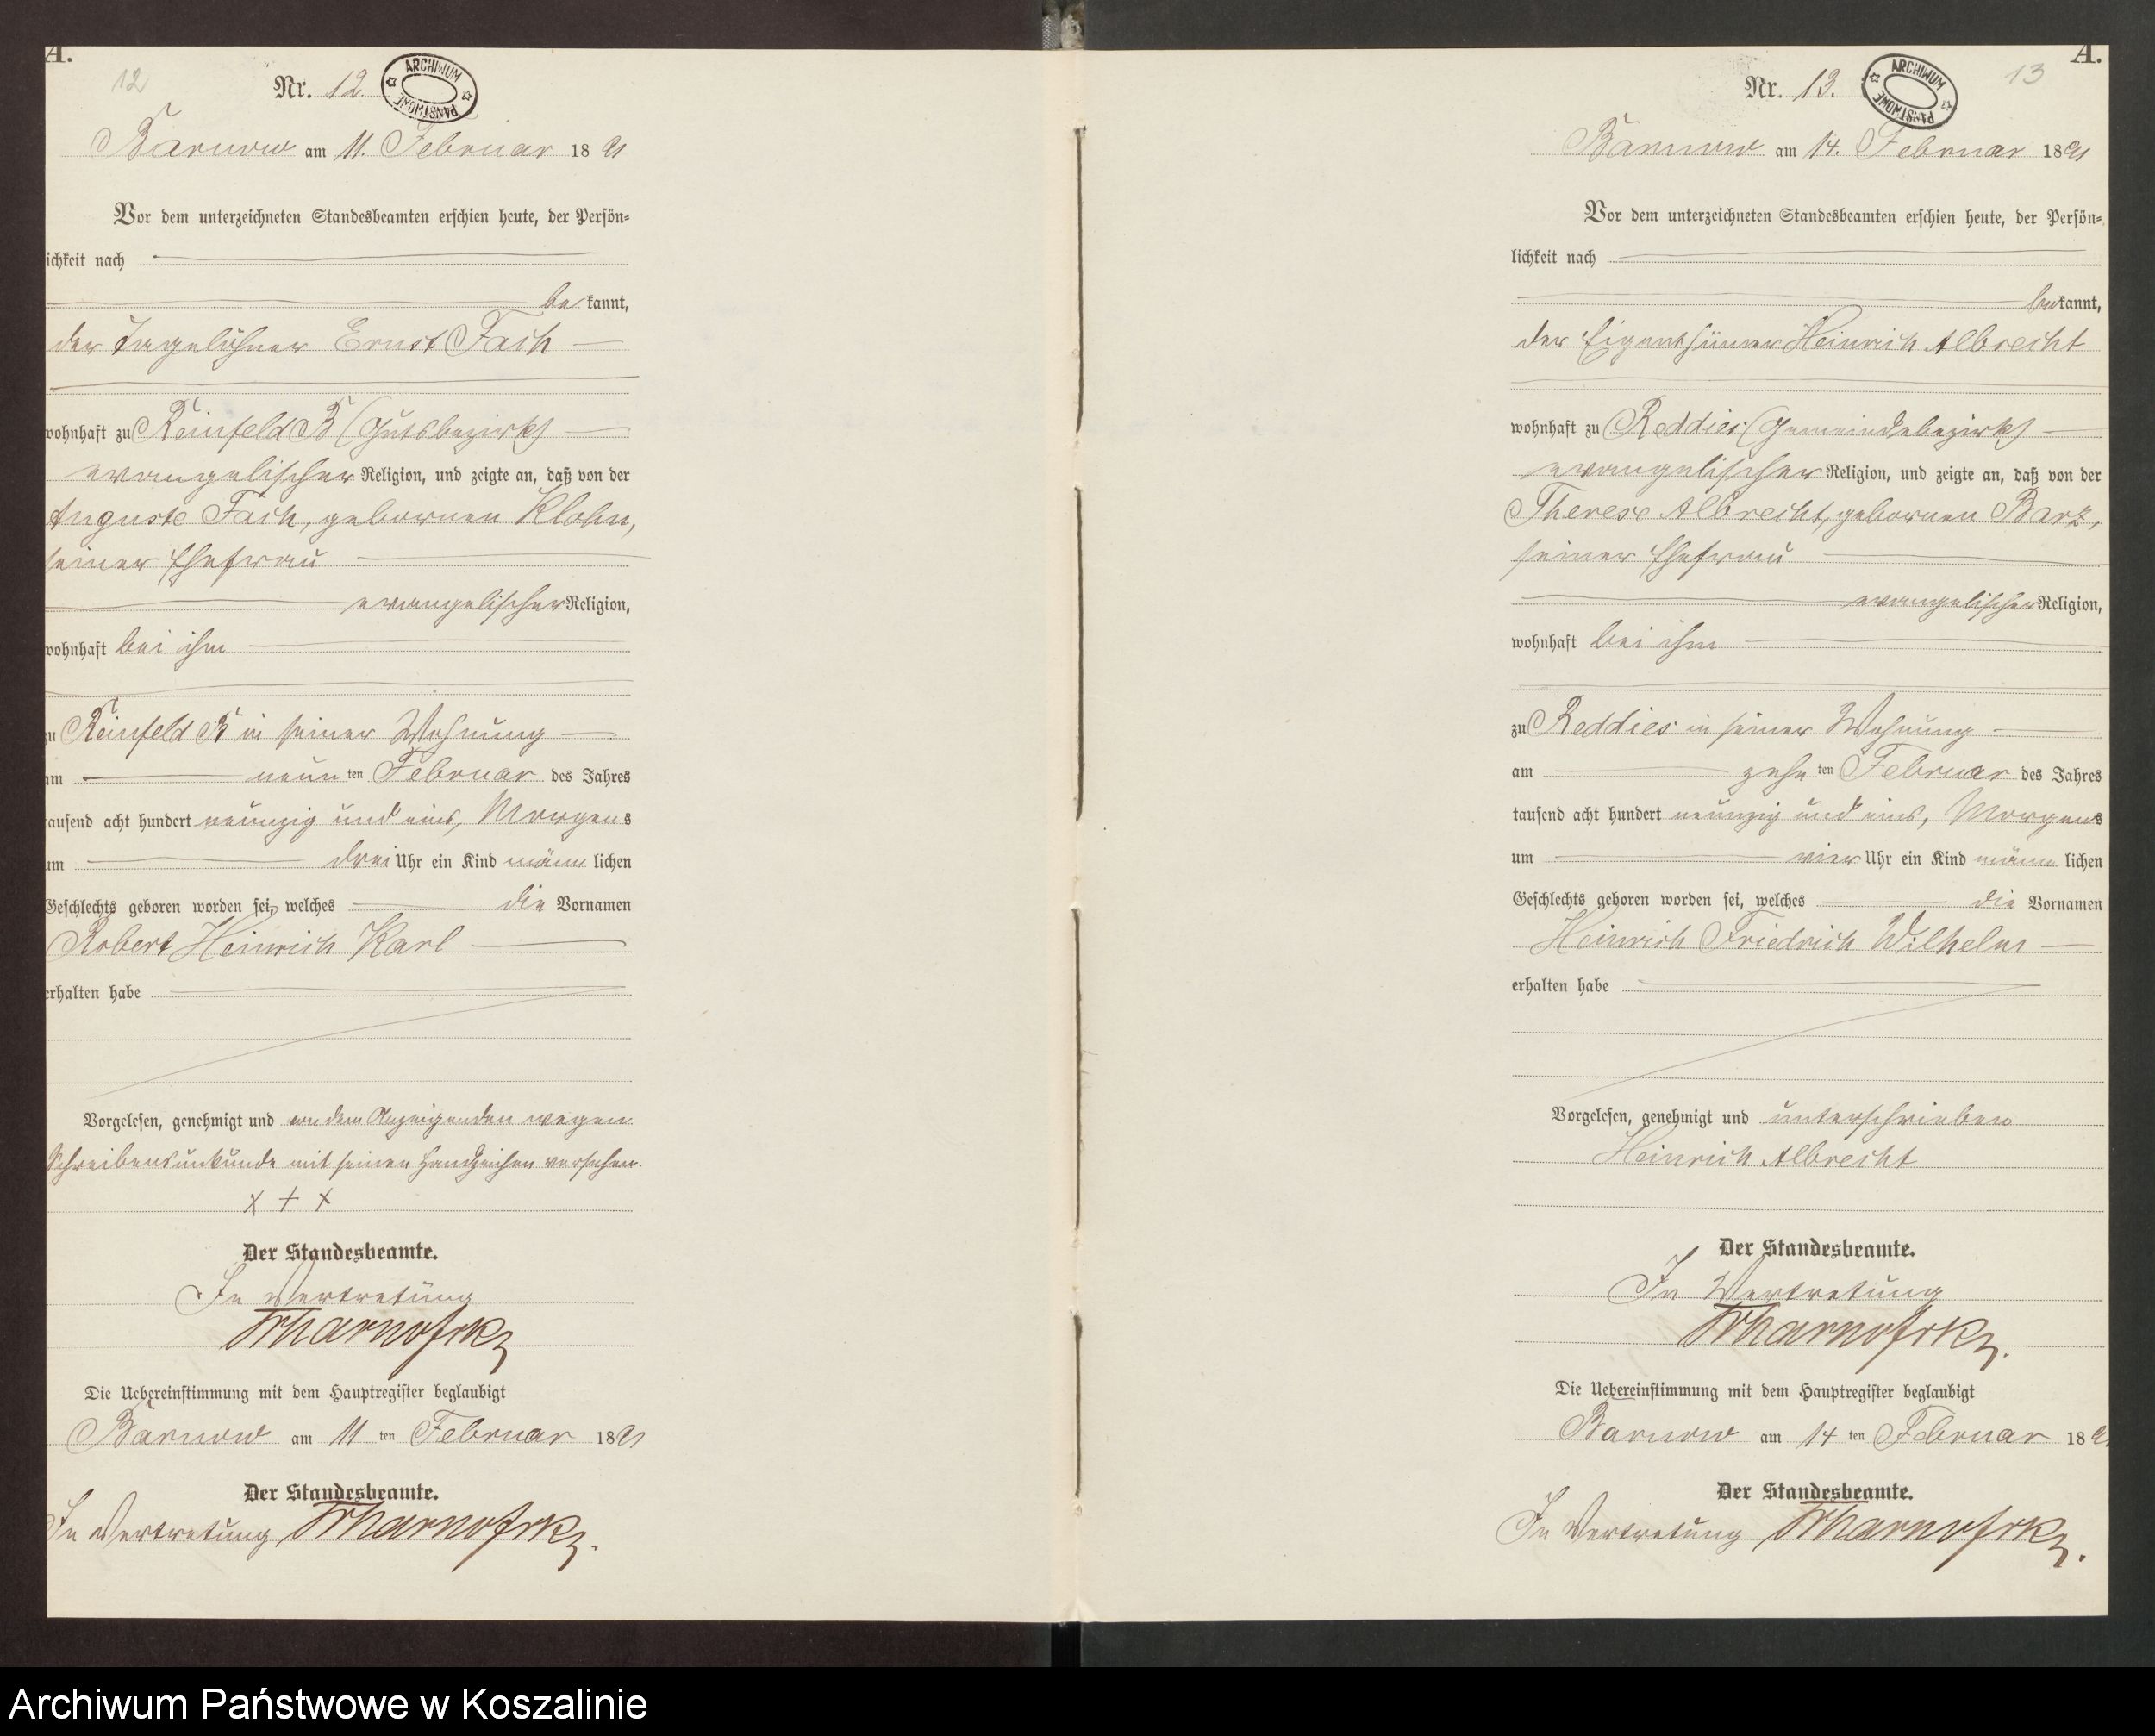 A.
12
Nr. 12.
ARCHIWUM PAŃSTWOWE
Barnow am 11. Februar 1891
Vor dem unterzeichneten Standesbeamten erschien heute, der Persön=
ichkeit nach
be kannt,
der Tagelöhner Ernst Fach
wohnhaft zu Reinfeld B (Gutsbezirk)
evangelischer Religion, und zeigte an, daß von der
Auguste Fach, gebornen Klohn,
seiner Ehefrau
evangelischer Religion,
wohnhaft bei ihm
zu Reinfeld B in seiner Wohnung
am neun ten Februar des Jahres
tausend acht hundert neunzig und eins, Morgens
um drei Uhr ein Kind männ lichen
Geschlechts geboren worden sei, welches die Vornamen
Robert Heinrich Karl
erhalten habe
Vorgelesen, genehmigt und von dem Anzeigenden wegen
Schreibensunkunde mit seinen Handzeichen versehen.
x + x
Der Standesbeamte.
In Vertretung
Die Uebereinstimmung mit dem Hauptregister beglaubigt
Barnow am 11 ten Februar 1891
Der Standesbeamte.
In Vertretung
A.
13
Nr. 13.
ARCHIWUM PAŃSTWOWE
Barnow am 14. Februar 1891
Vor dem unterzeichneten Standesbeamten erschien heute, der Persön=
lichkeit nach
bekannt,
der Eigenthümer Heinrich Albrecht
wohnhaft zu Reddies (Gemeindebezirk)
evangelischer Religion, und zeigte an, daß von der
Therese Albrecht, gebornen Barz,
seiner Ehefrau
evangelischer Religion,
wohnhaft bei ihm
zu Reddies in seiner Wohnung
am zehn ten Februar des Jahres
tausend acht hundert neunzig und eins, Morgens
um vier Uhr ein Kind männ lichen
Geschlechts geboren worden sei, welches die Vornamen
Heinrich Friedrich Wilhelm
erhalten habe
Vorgelesen, genehmigt und unterschrieben
Heinrich Albrecht
Der Standesbeamte.
In Vertretung
Die Uebereinstimmung mit dem Hauptregister beglaubigt
Barnow am 14 ten Februar 1891
Der Standesbeamte.
In Vertretung
Archiwum Państwowe w Koszalinie